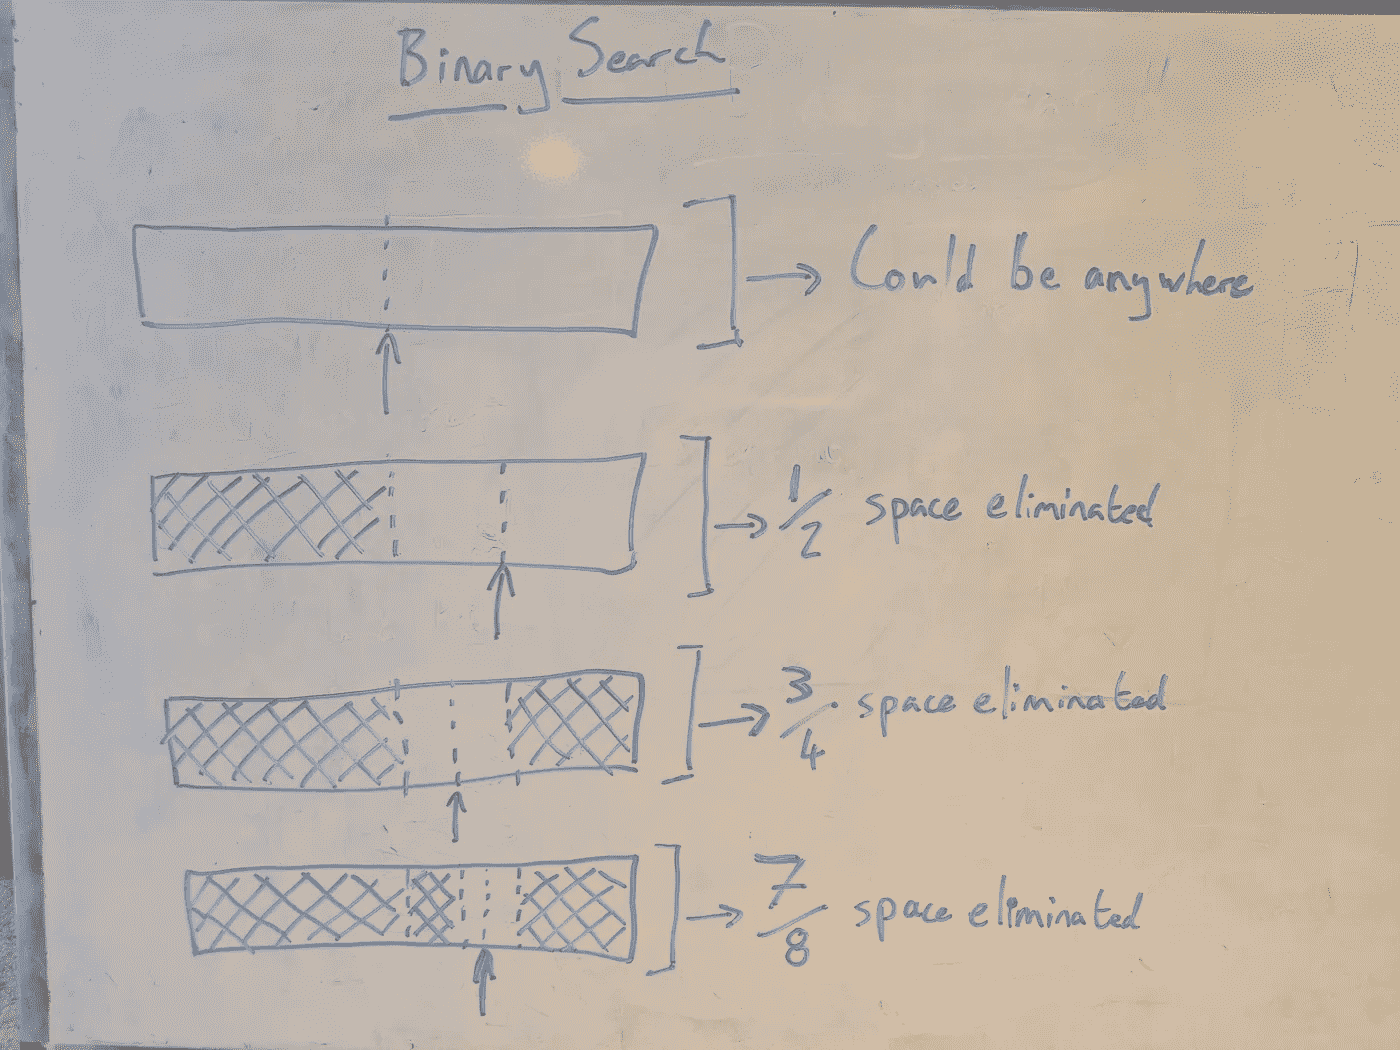 Binary Search
Could be anywhere
1/2 space eliminated
3/4 space eliminated
7/8 space eliminated